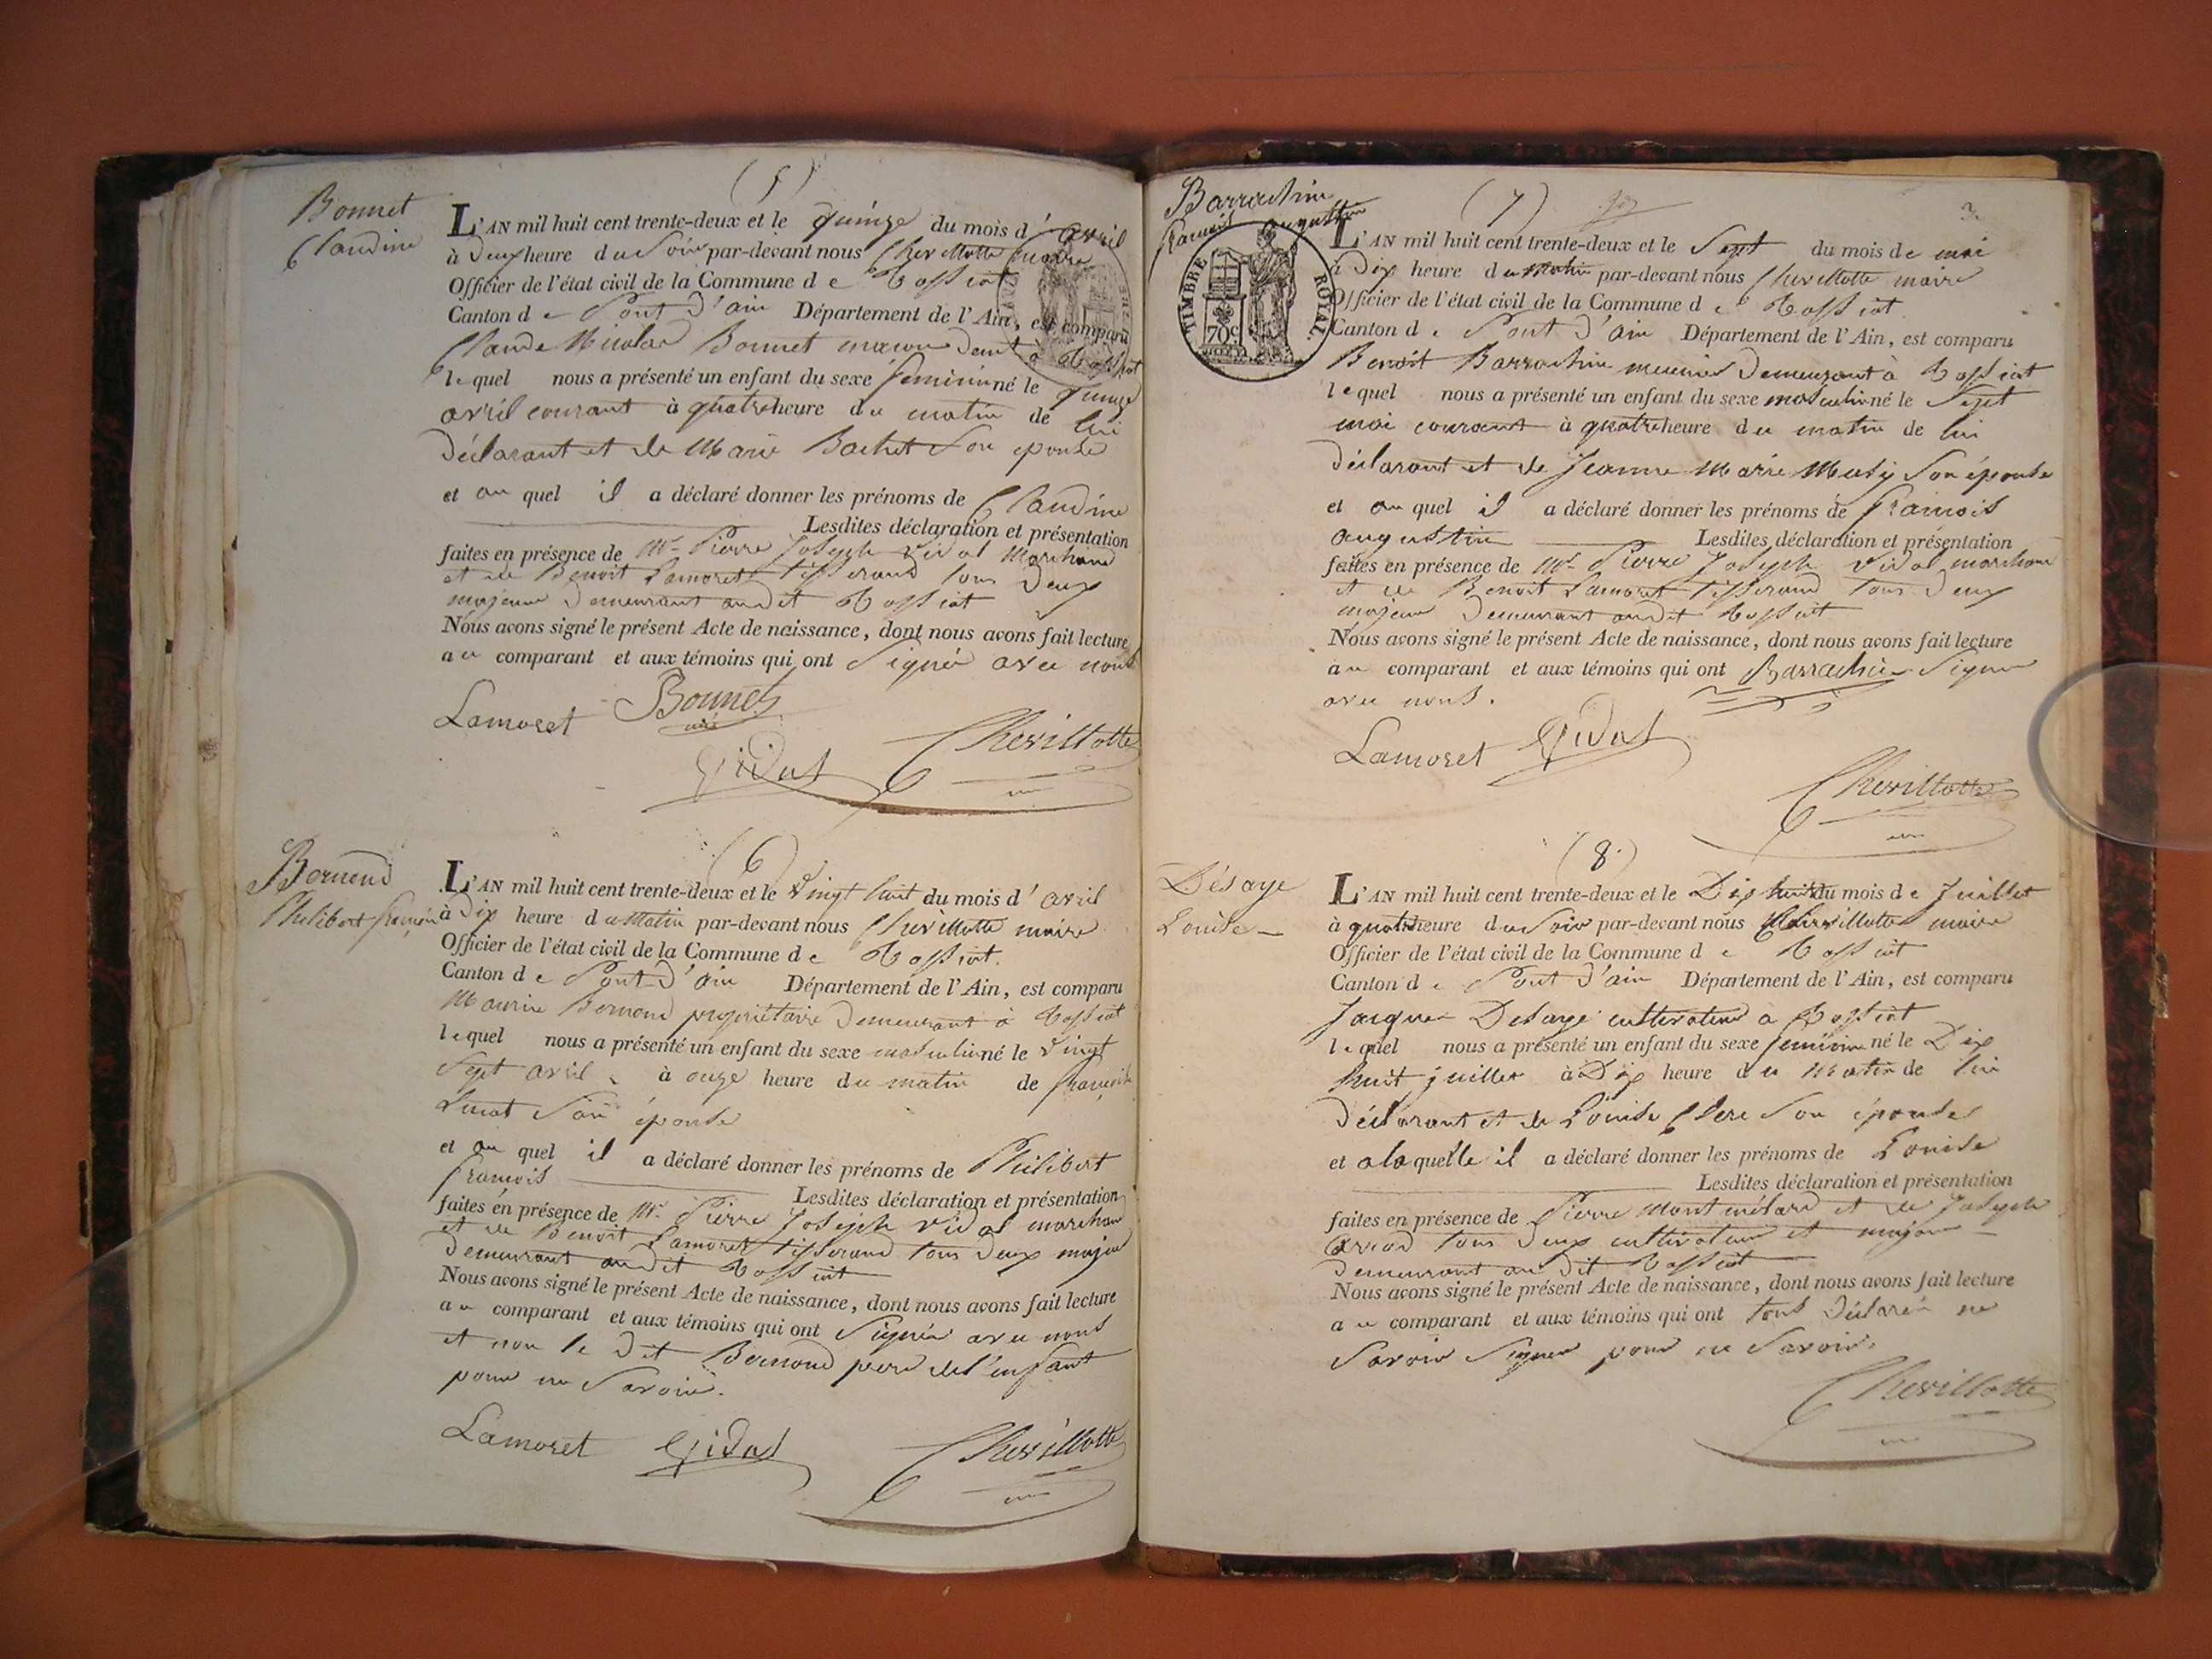 (5)
Bonnet
Claudine
L'AN mil huit cent trente-deux et le quinze du mois d'avril
à deux heure du Soir par-devant nous Chevillotte maire
Officier de l'état civil de la Commune de Tossiat
Canton de Pont d'ain Département de l'Ain, est comparu
Claude Nicolas Bonnet maçon demt à Tossiat
lequel nous a présenté un enfant du sexe feminin né le quinze
avril courant à quatre heure du matin de lui
déclarant et de Marie Bachet Son epouse
et au quel il a déclaré donner les prénoms de Claudine
Lesdites déclaration et présentation
faites en présence de Mr Pierre Joseph Vidal Marchand
et de Benoit Lamoret tisserand tous deux
majeur demeurant audit Tossiat
Nous avons signé le présent Acte de naissance, dont nous avons fait lecture
au comparant et aux témoins qui ont Signés avec nous
Lamoret Bonnet
Vidal Chevillotte
(6)
Bernond
Philibert françois
L'AN mil huit cent trente-deux et le vingt huit du mois d'avril
à Dix heure du Matin par-devant nous Chevillotte maire
Officier de l'état civil de la Commune de Tossiat.
Canton de Pont d'ain Département de l'Ain, est comparu
Bernond propriétaire demeurant à Tossiat
lequel nous a présenté un enfant du sexe masculin né le vingt
Sept avril à onze heure du matin de françoise
Son épouse
et au quel il a déclaré donner les prénoms de Philibert
francois Lesdites déclaration et présentation
faites en présence de Mr Pierre Joseph Vidal marchand
et de Benoit Lamoret tisserand tous deux majeur
demeurant audit Tossiat
Nous avons signé le présent Acte de naissance, dont nous avons fait lecture
au comparant et aux témoins qui ont Signés avec nous
et non le dit Bernond pere de l'enfant
pour ne Savoir.
Lamoret Vidal Chevillotte
(7)
Barrachin
francois augustin
TIMBRE ROYAL
70c
L'AN mil huit cent trente-deux et le Sept du mois de mai
à Dix heure du Matin par-devant nous Chevillotte maire
Officier de l'état civil de la Commune de Tossiat
Canton de Pont d'ain Département de l'Ain, est comparu
Benoit Barrachin meunier demeurant à Tossiat
lequel nous a présenté un enfant du sexe masculin né le Sept
mai courant à quatre heure du matin de lui
déclarant et de Jeanne Marie Son épouse
et au quel il a déclaré donner les prénoms de francois
augustin Lesdites déclaration et présentation
faites en présence de Mr Pierre Joseph Vidal marchand
et de Benoit Lamoret tisserand tous deux
majeur demeurant audit Tossiat
Nous avons signé le présent Acte de naissance, dont nous avons fait lecture
au comparant et aux témoins qui ont Barrachin Signer
avec nous.
Lamoret Vidal
Chevillotte
(8)
Désaye
Louise
L'AN mil huit cent trente-deux et le Dix huit du mois de Juillet
à quatre heure du Soir par-devant nous Chevillotte maire
Officier de l'état civil de la Commune de Tossiat
Canton de Pont d'ain Département de l'Ain, est comparu
Jacques Desaye cultivateur a Tossiat
lequel nous a présenté un enfant du sexe feminin né le Dix
huit juillet à Dix heure du Matin de lui
déclarant et de Louise Clerc Son épouse
et a laquelle il a déclaré donner les prénoms de Louise
Lesdites déclaration et présentation
faites en présence de Pierre et de Joseph
tous deux cultivateur et majeur
demeurant au dit Tossiat
Nous avons signé le présent Acte de naissance, dont nous avons fait lecture
au comparant et aux témoins qui ont tous déclarés ne
Savoir Signer pour ne Savoir.
Chevillotte